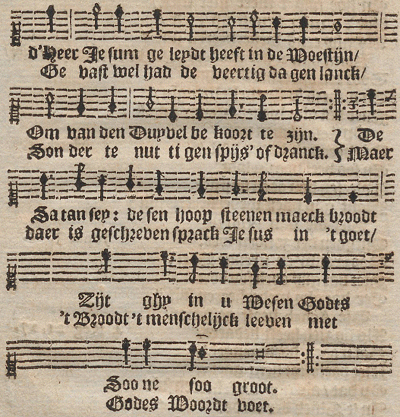 d'Heer Je sum ge leydt heeft in de Woestijn/
Ge vast wel had de veertig da gen lanck/
Om van den Duyvel be koort te zijn. De
Son der te nut ti gen spijs' of dranck. Maer
Sa tan sey: de sen hoop steenen maeck broodt
daer is geschreben sprack Je sus in 't goet/
Zijt ghy in u Wesen Godts
't Broodt 't menschelijck leeven met
Soo ne soo groot.
Godes Woordt voet.